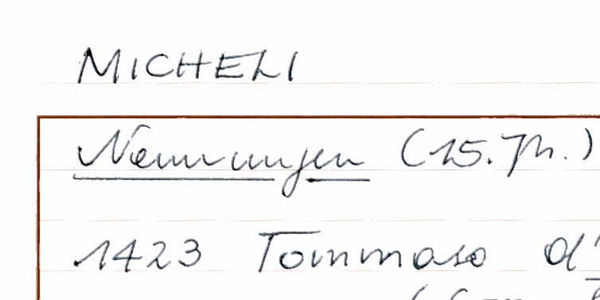 MICHELI
Nennungen (15. Jh.)
1423 Tommaso d'